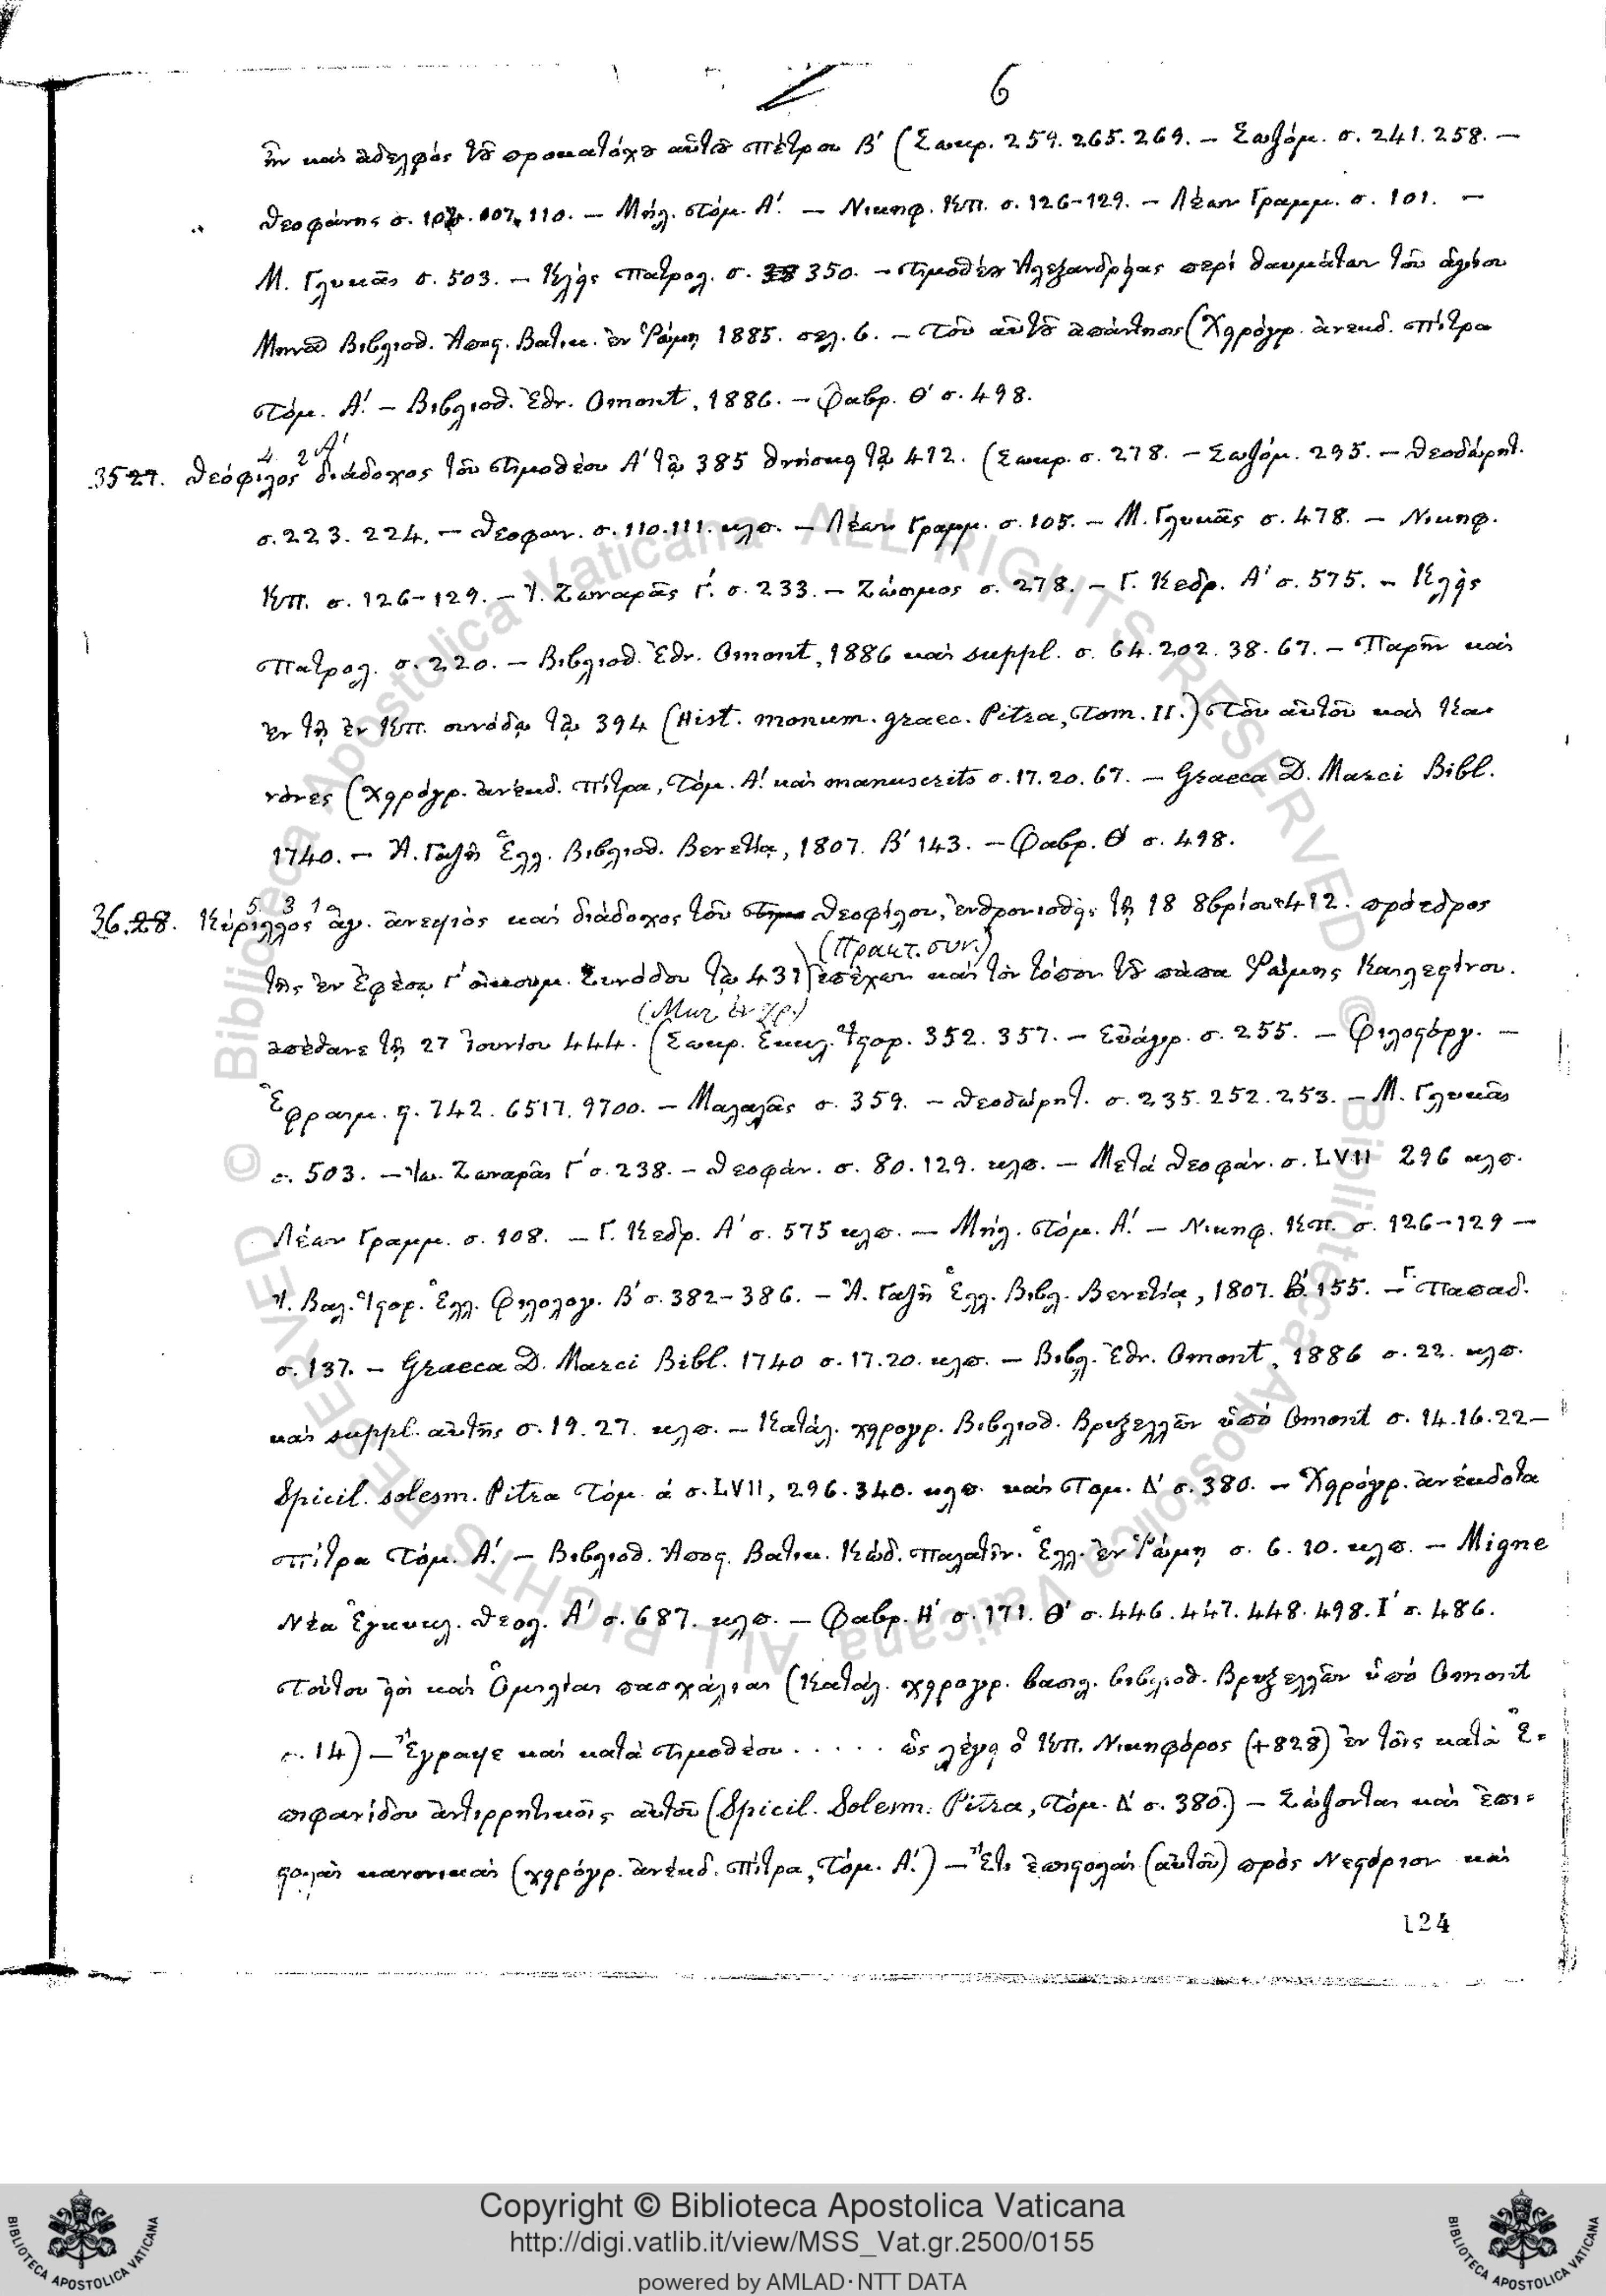 6
ἦν καὶ ἀδελφός τοῦ προκατόχου αὐτοῦ Πέτρου Β΄ (Σωκρ. 259. 265. 269. — Σωζόμ. σ. 241. 258. —
Θεοφάνης σ. 107. 110. — Μήλ. Τόμ. Α΄. — Νικηφ. Κπ. σ. 126-129. — Λέων Γραμμ. σ. 101. —
Μ. Γλυκᾶς σ. 503. — Κλὴς Πατρολ. σ. 350. — Τιμοθέου Ἀλεξανδρείας περί θαυμάτων τοῦ ἁγίου
Μηνᾶ Βιβλιοθ. Ἀποστ. Βατικ. ἐν Ῥώμῃ 1885. σελ. 6. — Τοῦ αὐτοῦ (Χειρόγρ. ἀνεκδ. Πίτρα
Τόμ. Α΄. — Βιβλιοθ. Ἐθν. Omont, 1886. — Φαβρ. Θ΄ σ. 498.
4. 2 Α΄
35 27. Θεόφιλος διάδοχος τοῦ Τιμοθέου Α΄ τῷ 385 θνήσκει τῷ 412. (Σωκρ. σ. 278. — Σωζόμ. 295. — Θεοδώρητ.
σ. 223. 224. — Θεοφαν. σ. 110. 111. κλπ. — Λέων Γραμμ. σ. 105. — Μ. Γλυκᾶς σ. 478. — Νικηφ.
Κπ. σ. 126-129. — Ἰ. Ζωναρᾶς Γ΄. σ. 233. — Ζώσιμος σ. 278. — Γ. Κεδρ. Α΄ σ. 575. — Κλὴς
Πατρολ. σ. 220. — Βιβλιοθ. Ἐθν. Omont, 1886 καὶ suppl. σ. 64. 202. 38. 67. — Παρῆν καὶ
ἐν τῇ ἐν Κπ. συνόδῳ τῷ 394 (Hist. monum. graec. Pitra, Tom. II.) Τοῦ αὐτοῦ καὶ Κα-
νόνες (Χειρόγρ. ἀνέκδ. Πίτρα, Τόμ. Α΄. καὶ manuscrits σ. 17. 20. 67. — Graeca D. Marci Bibl.
1740. — Ἀ. Γαζῆ Ἑλλ. Βιβλιοθ. Βενετίᾳ, 1807. Β΄ 143. — Φαβρ. Θ΄ σ. 498.
5. 3 1
36. 28. Κύριλλος ἁγ. ἀνεψιὸς καὶ διάδοχος τοῦ Θεοφίλου, ἐνθρονισθεὶς τῇ 18 8βρίου 412. πρόεδρος
(Πρακτ. συν.)
τῆς ἐν Ἐφέσῳ Γ΄ οἰκουμ. Συνόδου τῷ 431 ἐπέχων καὶ τὸν τόπον τοῦ πάπα Ῥώμης Καιλεστίνου.
ἀπέθανε τῇ 27 Ἰουνίου 444. (Σωκρ. Ἐκκλ. Ἱστορ. 352. 357. — Εὐάγρ. σ. 255. — Φιλοστόργ. —
Ἐφραιμ. στ. 742. 6517. 9700. — Μαλαλᾶς σ. 359. — Θεοδώρητ. σ. 235. 252. 253. — Μ. Γλυκᾶς
σ. 503. — Ἰω. Ζωναρᾶς Γ΄ σ. 238. — Θεοφάν. σ. 80. 129. κλπ. — Μετά Θεοφάν. σ. LVII 296 κλπ.
Λέων Γραμμ. σ. 108. — Γ. Κεδρ. Α΄ σ. 575 κλπ. — Μήλ. Τόμ. Α΄. — Νικηφ. Κπ. σ. 126-129 —
Ἰ. Βαλ. Ἱστορ. Ἑλλ. Φιλολογ. Β΄ σ. 382-386. — Ἀ. Γαζῆ Ἑλλ. Βιβλ. Βενετίᾳ, 1807. Β΄. 155. — Γ. Παπαδ.
σ. 137. — Graeca D. Marci Bibl. 1740 σ. 17. 20. κλπ. — Βιβλ. Ἐθν. Omont, 1886 σ. 22. κλπ.
καὶ suppl. αὐτῆς σ. 19. 27. κλπ. — Κατάλ. χειρογρ. Βιβλιοθ. Βρυξελλῶν ὑπό Omont σ. 14. 16. 22 —
Spicil. solesm. Pitra Τόμ. ά σ. LVII, 296. 340. κλπ. καὶ Τομ. Δ΄ σ. 380. — Χειρόγρ. ἀνέκδοτα
Πίτρα Τόμ. Α΄. — Βιβλιοθ. Ἀποστ. Βατικ. Κώδ. Παλατίν. Ἑλλ. ἐν Ῥώμῃ σ. 6. 10. κλπ. — Migne
Νέα Ἐγκυκλ. Θεολ. Α΄ σ. 687. κλπ. — Φαβρ. Η΄ σ. 171. Θ΄ σ. 446. 447. 448. 498. Ι΄ σ. 486.
Τούτου εἰσὶ καὶ Ὁμιλίαι πασχάλιαι (Κατάλ. χειρογρ. βασιλ. βιβλιοθ. Βρυξελλῶν ὑπό Omont
σ. 14) — Ἔγραψε καὶ κατὰ Τιμοθέου ..... ὡς λέγει ὁ Κπ. Νικηφόρος (+828) ἐν τοῖς κατὰ Ἐ-
πιφανίδου ἀντιρρητικοῖς αὐτοῦ (Spicil. Solesm. Pitra, Τόμ. Δ΄ σ. 380.) — Σώζονται καὶ ἐπι-
στολαὶ κανονικαὶ (χειρόγρ. ἀνέκδ. Πίτρα, Τόμ. Α΄.) — Ἔτι ἐπιστολαὶ (αὐτοῦ) πρὸς Νεστόριον καὶ
124
© Biblioteca Apostolica Vaticana ALL RIGHTS RESERVED
© Biblioteca Apostolica Vaticana ALL RIGHTS RESERVED
Copyright © Biblioteca Apostolica Vaticana
http://digi.vatlib.it/view/MSS_Vat.gr.2500/0155
powered by AMLAD·NTT DATA
BIBLIOTECA APOSTOLICA VATICANA
BIBLIOTECA APOSTOLICA VATICANA